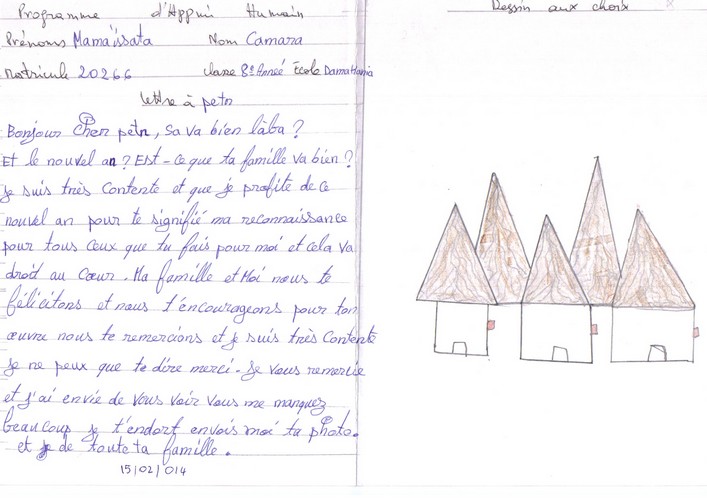 Programme d'Appui Humain
Dessin aux choix
Prénoms Mama'issata Nom Camara
Matricule 20266 classe 8e Anneé École DamaHania
lettre à petr
Bonjour Cher petr, sa va bien làba ?
Et le nouvel an ? Est-ce que ta famille va bien ?
je suis très contente et que je profite de ce
nouvel an pour te signifié ma reconnaissance
pour tous ceux que tu fais pour moi et cela va
droit au Cœur. Ma famille et Moi nous te
félicitons et nous t'encourageons pour ton
œuvre nous te remercions et je suis très Contente
je ne peux que te dire merci. Je vous remercie
et j'ai envie de vous voir vous me manquez
beaucoup je t'endort envois moi ta photo.
et de toute ta famille.
15/02/014